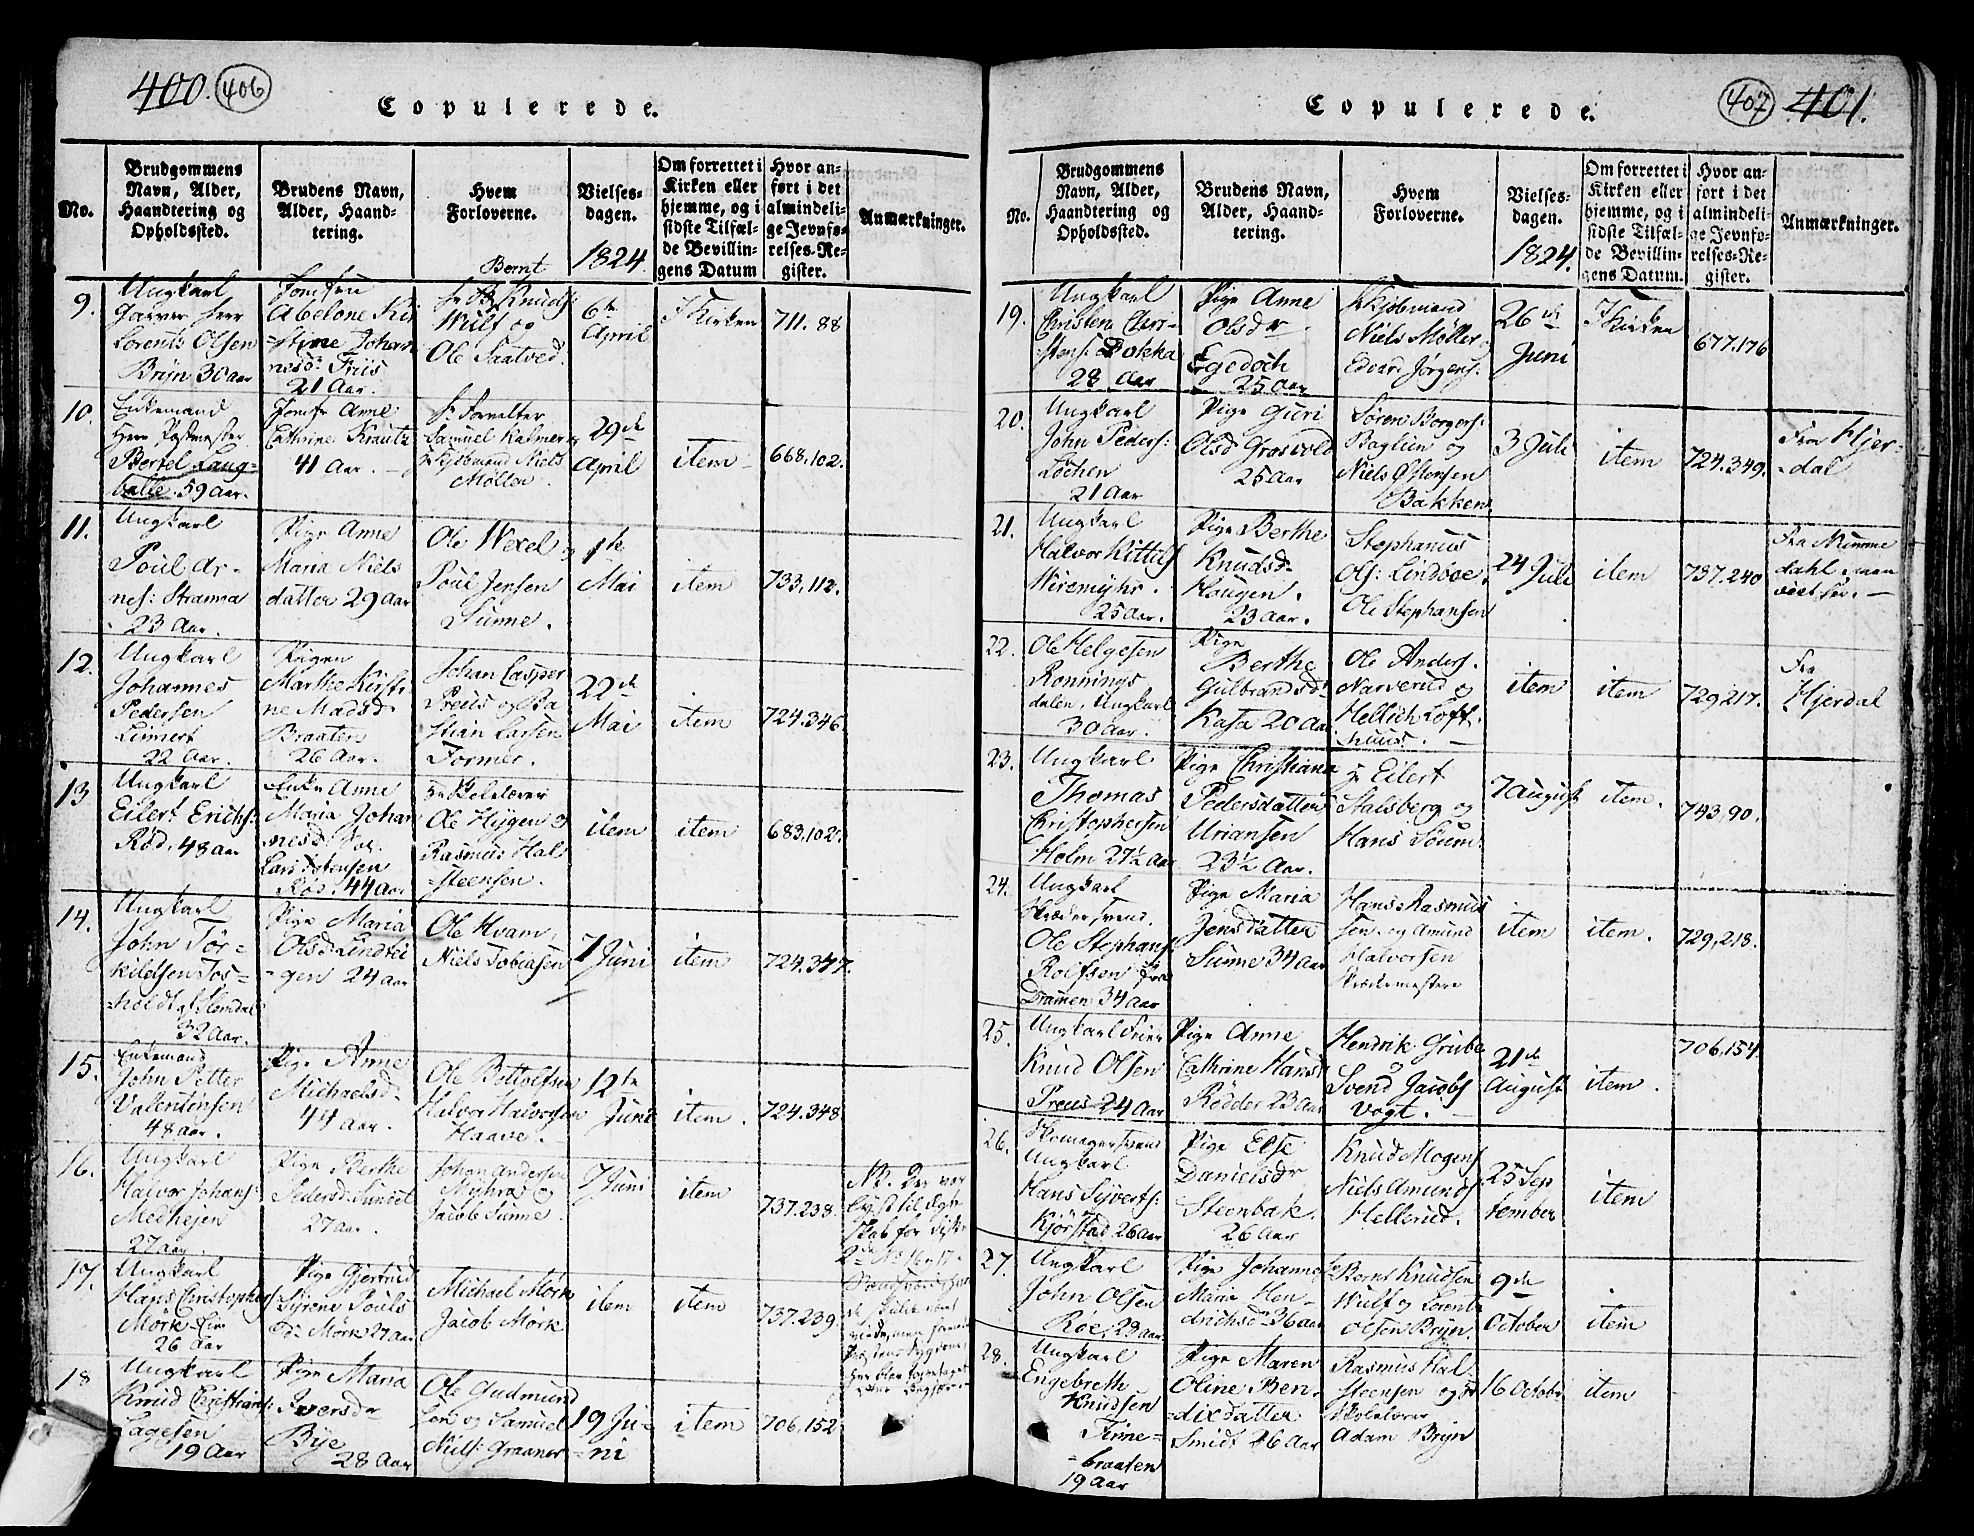 400. 406
Copulerede.
No.
Brudgommens
Navn, Alder,
Haandtering og
Opholdssted.
Brudens Navn,
Alder, Haand-
tering.
Hvem
Forloverne.
Vielses-
dagen.
1824
Om forrettet i
Kirken eller
hjemme, og i
sidste Tilfæl-
de Bevillin-
gens Datum
Hvor an-
ført i det
almindeli-
ge Jevnfø-
relses-Re-
gister.
Anmærkninger.
9.
Ungkarl
Garver Herr
Lorents Olsen
Bryn 30 aar
Jomfru
Abelone Kir
stine Johan
nesdr Friis
21 Aar.
Bernt
Hr Knuds:
Wulf og
Ole Saatved.
6te
April
I Kirken
711. 88
10.
Enkemand
Herr Postmester
Bertel Lang-
balle. 59 aar.
Jomfr Anne
Cathrine Krautz
41 Aar.
Hr Forvalter
Samuel Kalmer
Kjøbmand Niels
Møller.
29de
April
item
668,102.
11.
Ungkarl
Poul Ar-
nes: Stranna
23 Aar.
Pige Anne
Maria Niels
datter 29 aar
Ole Wexel
Poul Jensen
Sunne.
1te
Mai
item
733,112.
12.
Ungkarl
Johannes
Pedersen
Linnert
22 Aar.
Pigen
Marthe Kirsti
ne Madsd.
Braaten
26 Aar.
Johan Casper
Preus og Ba
stian Larsen
Former.
22de
Mai
item
724.346.
13
Ungkarl
Eilert Erichs:
Röd, 48 aar
Enke Anne
Maria Johan
nesd: For.
Lars Estensen
Röd, 44 Aar
Hr Skolelærer
Ole Hejgen
Rasmus Hal
steensen.
item
item
683,102.
14.
Ungkarl
John Tor-
kildsen Tos-
holdt af Slemdal
32 Aar.
Pige Maria
Olsd: Lindsti
gen 24 aar
Ole Hvam,
Niels Tobiasen
7 Juni
item
724.347.
15.
Enkemand
John Petter
Valentinsen
48 aar.
Pige Anne
Michaelsd.
44 aar.
Ole Bottolfsen
Halvor Halvorsen
Haave.
12te
Juni
item.
724.348
16.
Ungkarl
Halvor Johans:
Medhejen
27 aar.
Pige Berthe
Pedersd: Sundet
27 aar.
Johan Andersen
Myhra
Jacob Sunne.
7 Juni
item
737.238.
17.
Ungkarl
Hans Christophers
Mörk
26 Aar
Pige Gjertrud
Syrene Pouls
d: Mörk 27 aar
Michael Mörk
Jacob Mörk
item
item
737.239.
18
Ungkarl
Knud Christians:
Lagesen
19 Aar
Pige Maria
Iversdr
Bye
28 Aar
Ole Gudmund
sen og Samuel
Niels: Graaner
19 Ju-
ni
item
706,152.
Copulerede.
407 401.
No.
Brudgommens
Navn, Alder,
Haandtering og
Opholdssted.
Brudens Navn,
Alder, Haand-
tering.
Hvem
Forloverne.
Vielses-
dagen.
1824.
Om forrettet i
Kirken eller
hjemme, og i
sidste Tilfæl-
de Bevillin-
gens Datum.
Hvor an-
ført i det
almindeli-
ge Jevnfø-
relses-Re-
gister.
Anmærkninger.
19.
Ungkarl
Christen Chri-
stens: Dokka
28 Aar
Pige Anne
Olsdr.
Egedoch
25 Aar
Kjøbmand
Niels Møller
Edvar Jörgens:
26de
Juni
I Kirken
677.176
20.
Ungkarl
John Peders:
Löchen
21 Aar
Pige Guri
Olsd Grosvold
25 Aar
Sören Borgers:
Baglien og
Niels Östensen
Bakken
3 Juli
item
724.349.
Fra Hjer-
dal
21.
Ungkarl
Halvor Kittils
Wiremyhr.
25 aar.
Pige Berthe
Knudsd.
Haugen.
23 Aar.
Stephanus
Ols: Lindöe
Ole Stephansen
24 Juli
item
737.240
22.
Ole Helgesen
Ronnings
dalen, Ungkarl
30 aar.
Pige
Berthe
Gulbrandsd:
Kasa 20 Aar
Ole Anders.
Narverud og
Hellich Loft
huus.
item
item
729,217.
Fra
Hjerdal
23.
Ungkarl
Thomas
Christophersen
Holm 27½ Aar
Pige Christiana
Pedersdatter
Uriansen
23½ Aar.
Hr Eilert
Stalsberg og
Hans Soum
7 August
item.
743,90.
24.
Ungkarl
Skræder Svend.
Ole Stephans:
Rolfsen fra
Dramen 34 aar
Pige Maria
Jensdatter
Sunne 34 aar
Hans Rasmus
sen og Amund
Halvorsen
Skrædermestere
item
item.
729,218.
25.
Ungkarl
Knud Olsen
Preus 24 Aar
Pige Anne
Cathrine Hans:
Rödder 23 aar
Hendrik Grube
Svend Jacobs
Vogt.
21de
August
item.
706,154
26.
Skomagersvend
Ungkarl
Hans Syverts:
Kjörstad 26 aar
Pige Else
Danielsdr
Steenbak.
26 Aar
Knud Mogens
Niels Amunds
Hellerud.
25 Sep
tember
item
27.
Ungkarl
John Olsen
Röe, 28 aar.
Pige Johanne
Maria Hen-
drichsd 36 aar
Bernt Knudsen
Wulf og Lorents
Olsen Bryn.
9de
October
item
28.
Ungkarl
Engebreth
Knudsen
Finne-
braaten
19 Aar
Pige Maren
Oline Ben-
dixdatter
Smidt 26 Aar
Rasmus Hal
steensen og Hr
Skolelærer
Adam Bryn
16 Octobr
item